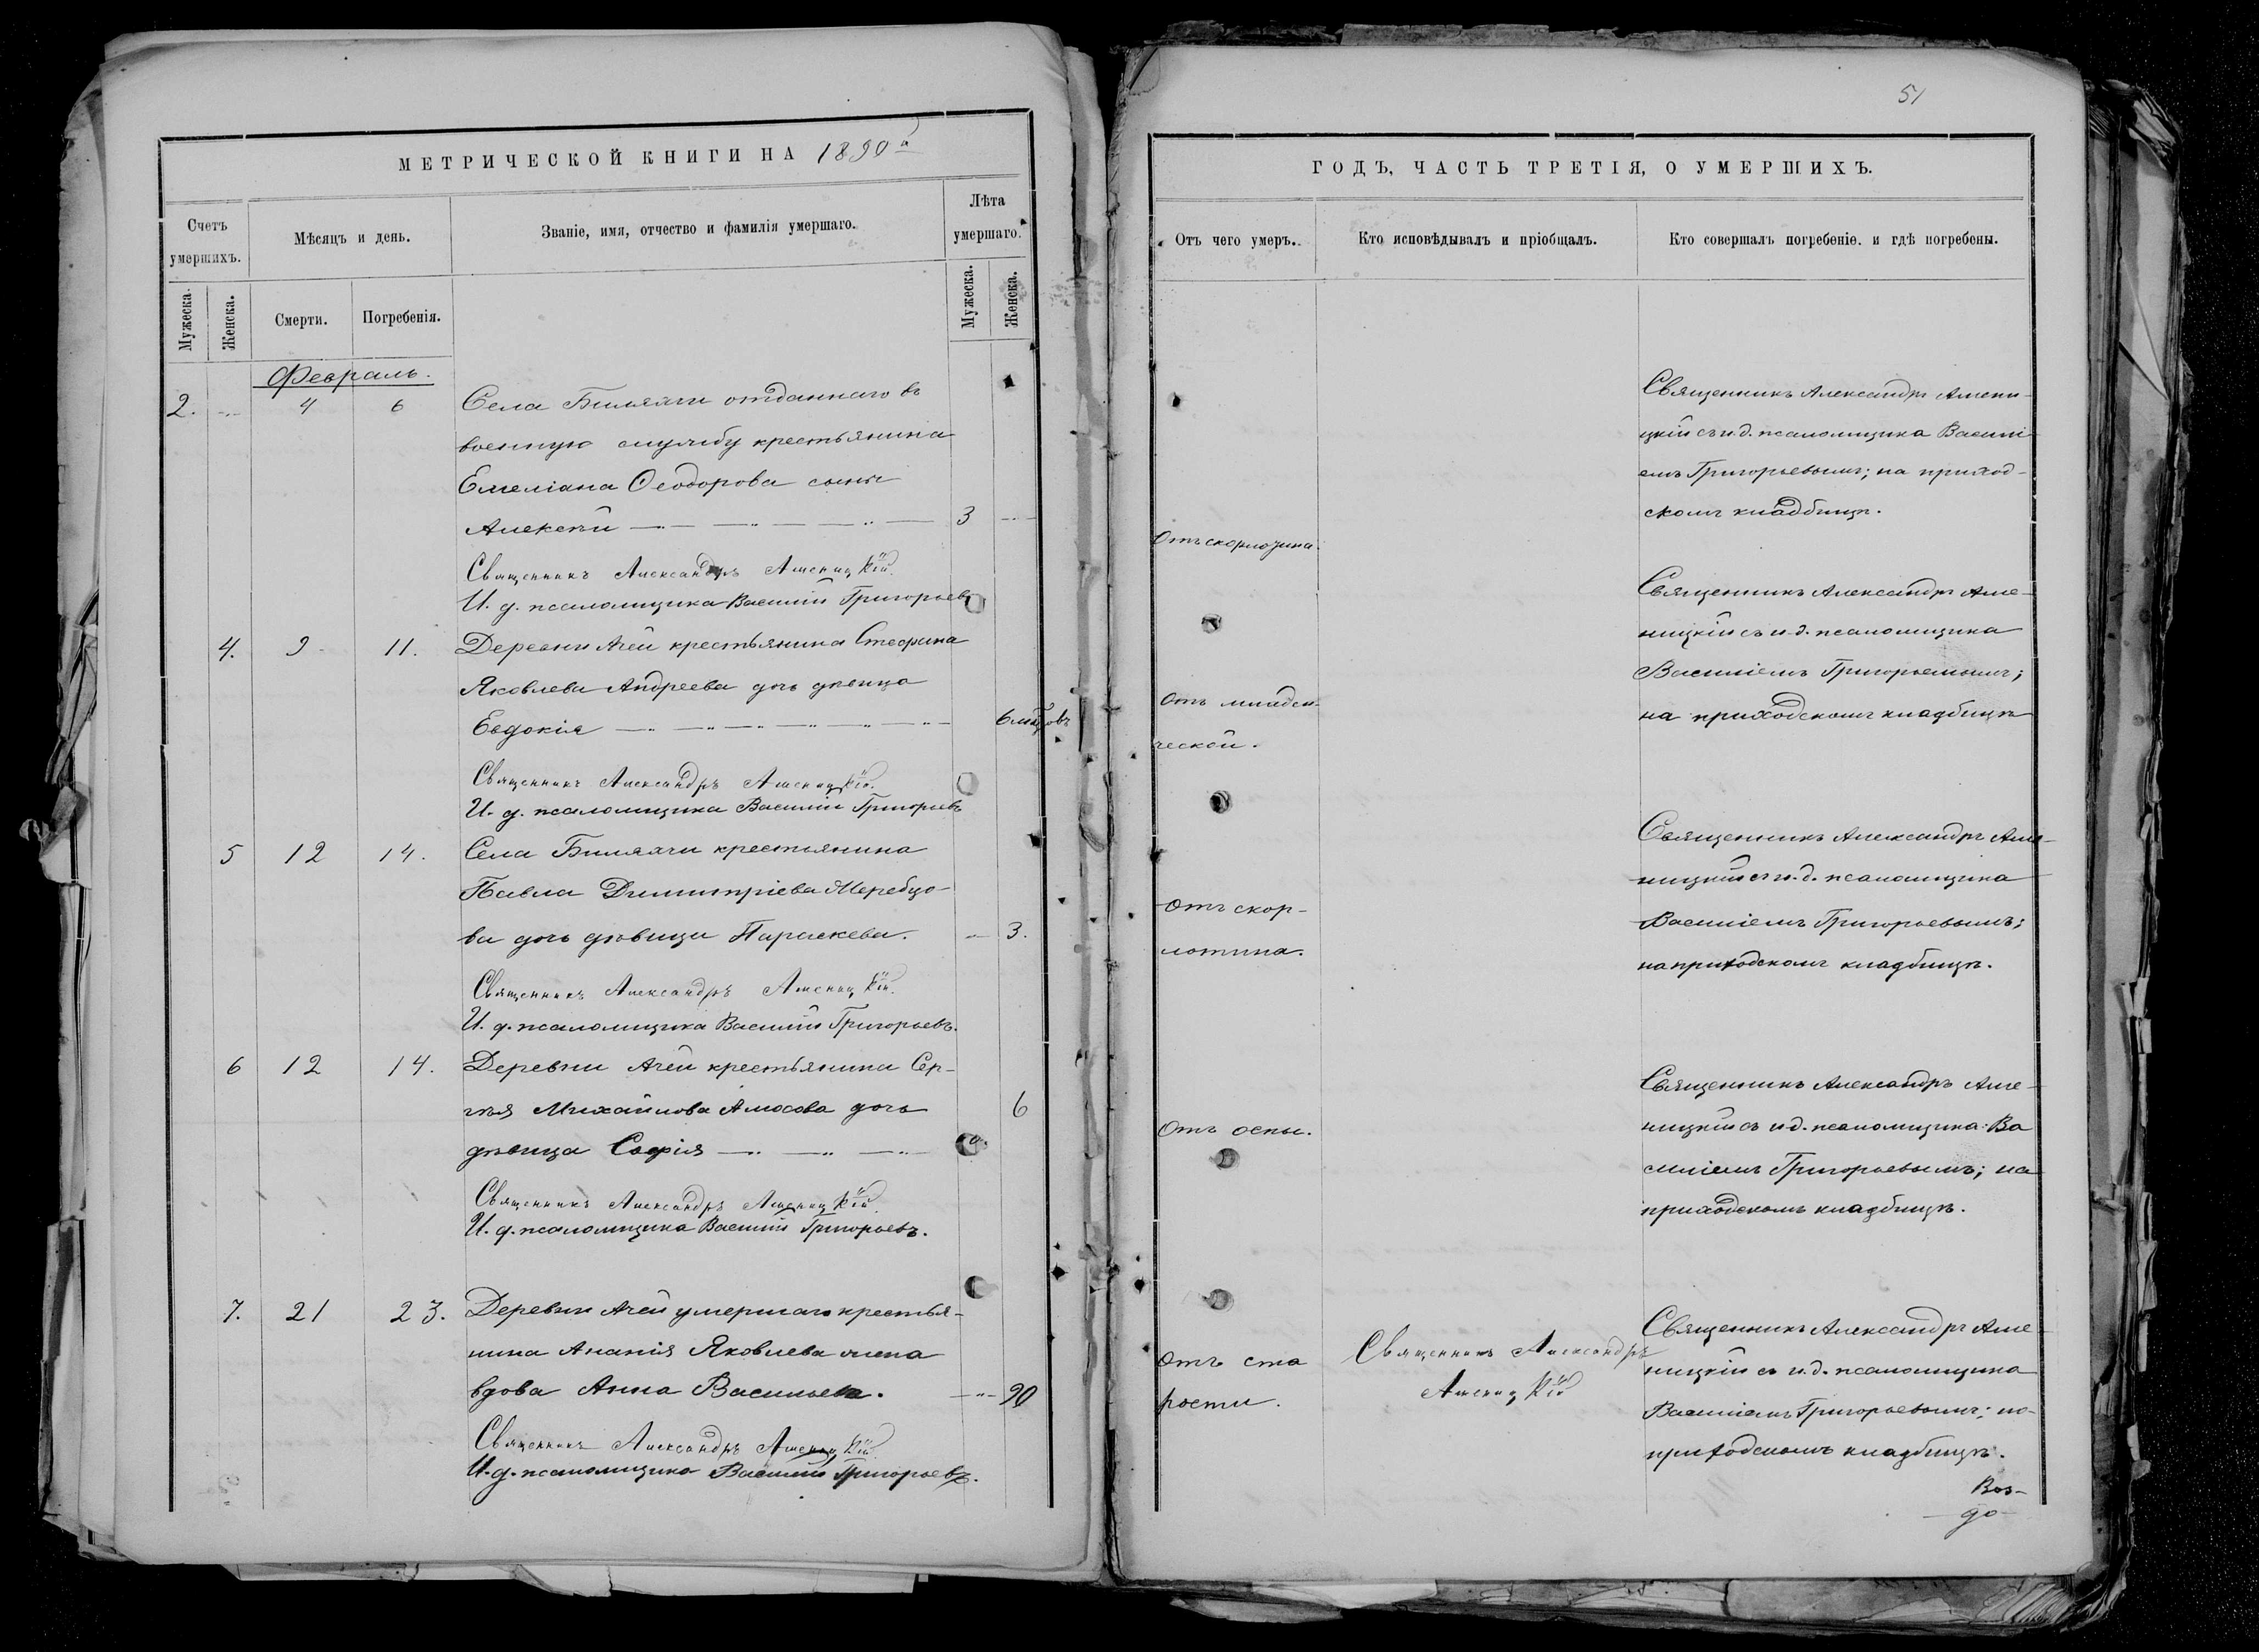 МЕТРИЧЕСКОЙ КНИГИ НА 1890й
Счетъ умершихъ.
Мѣсяцъ и день.
Званіе, имя, отчество и фамилія умершаго.
Лѣта умершаго.
Мужеска.
Женска.
Смерти.
Погребенія.
Мужеска.
Женска.
Февраль.
2. 4 6 Села Биляхчи отданнаго въ
военную службу крестьянина
Емеліана Ѳеодорова сынъ
Алексѣй 3
Священникъ Александръ Аменицкій.
И. д. псаломщика Василій Григорьевъ
4. 9 11. Деревни Ачей крестьянина Стефана
Яковлева Андреева дочь дѣвица
Евдокія 6
Священникъ Александръ Аменицкій.
И. д. псаломщика Василій Григорьевъ
5 12 14. Села Биляхчи крестьянина
Павла Димитріева
ва дочь дѣвица Параскева. 3.
Священникъ Александръ Аменицкій.
И. д. псаломщика Василій Григорьевъ.
6 12 14. Деревни Ачей крестьянина Сер-
гѣя Михайлова Амосова дочь 6
дѣвица Софія
Священникъ Александръ Аменицкій.
И. д. псаломщика Василій Григорьевъ.
7. 21 23. Деревни Ачей умершаго крестья-
нина Ананія Яковлева жена
вдова Анна Васильева. 90
Священникъ Александръ Аменицкій
И. д. псаломщика Василій Григорьевъ.
51
ГОДЪ, ЧАСТЬ ТРЕТІЯ, О УМЕРШИХЪ.
Отъ чего умеръ.
Кто исповѣдывалъ и пріобщалъ.
Кто совершалъ погребеніе и гдѣ погребены.
Священникъ Александръ Амени-
цкій съ и. д. псаломщика Василі
емъ Григорьевымъ; на приход-
скомъ кладбищѣ.
Отъ
Священникъ Александръ Аме-
ницкій съ и. д. псаломщика
Василіемъ Григорьевымъ;
на приходскомъ кладбищѣ
Отъ младен-
ческой.
Священникъ Александръ Аме-
ницкій съ и. д. псаломщика
Василіемъ Григорьевымъ;
на приходскомъ кладбищѣ.
Отъ скор-
лотина.
Священникъ Александръ Аме-
ницкій съ и. д. псаломщика Ва
силіемъ Григорьевымъ; на
приходскомъ кладбищѣ.
Отъ оспы.
Отъ ста
рости.
Священникъ Александръ
Аменицкій
Священникъ Александръ Аме-
ницкій съ и. д. псаломщика
Василіемъ Григорьевымъ; на
приходскомъ кладбищѣ.